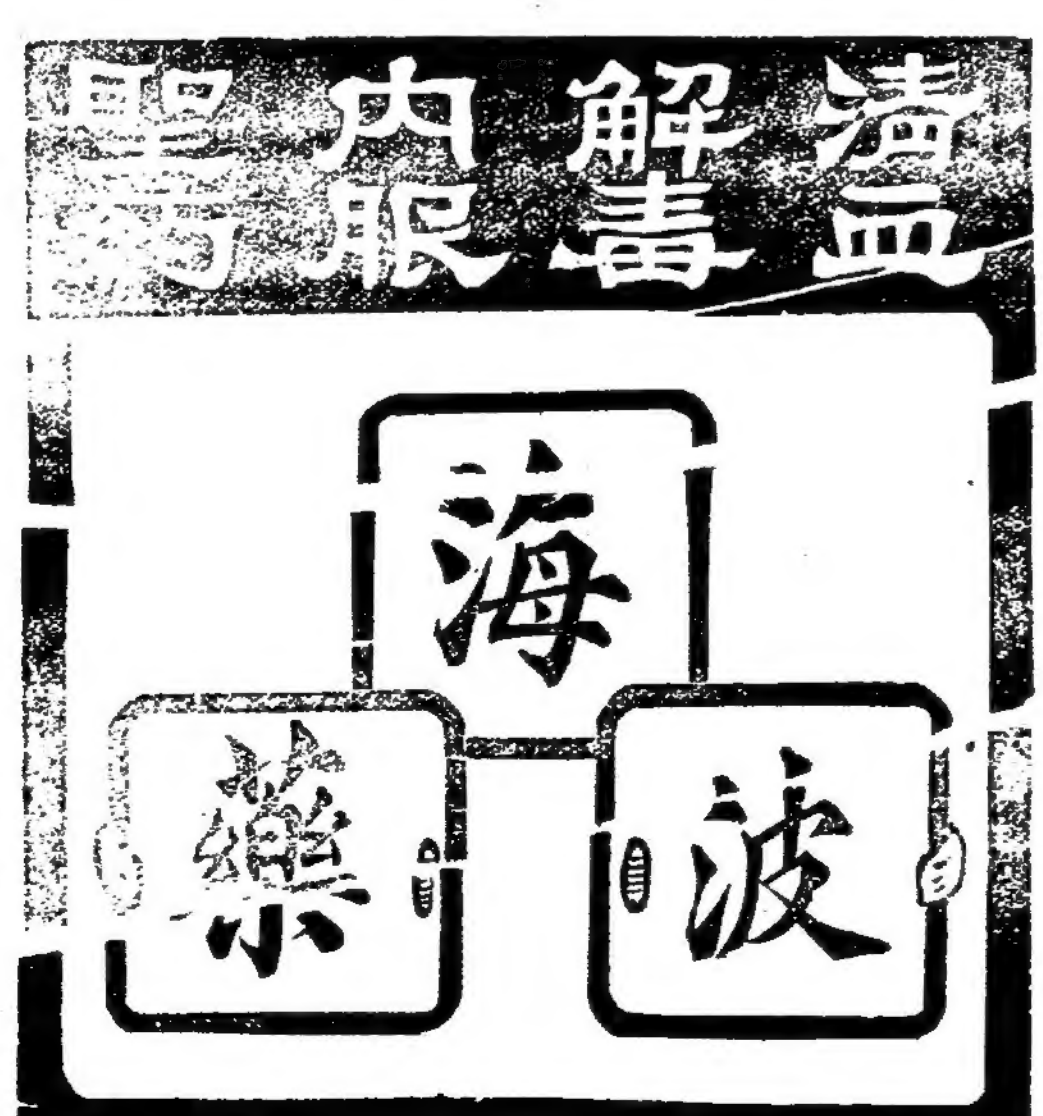 清血
解毒
內服
聖
海
波
藥